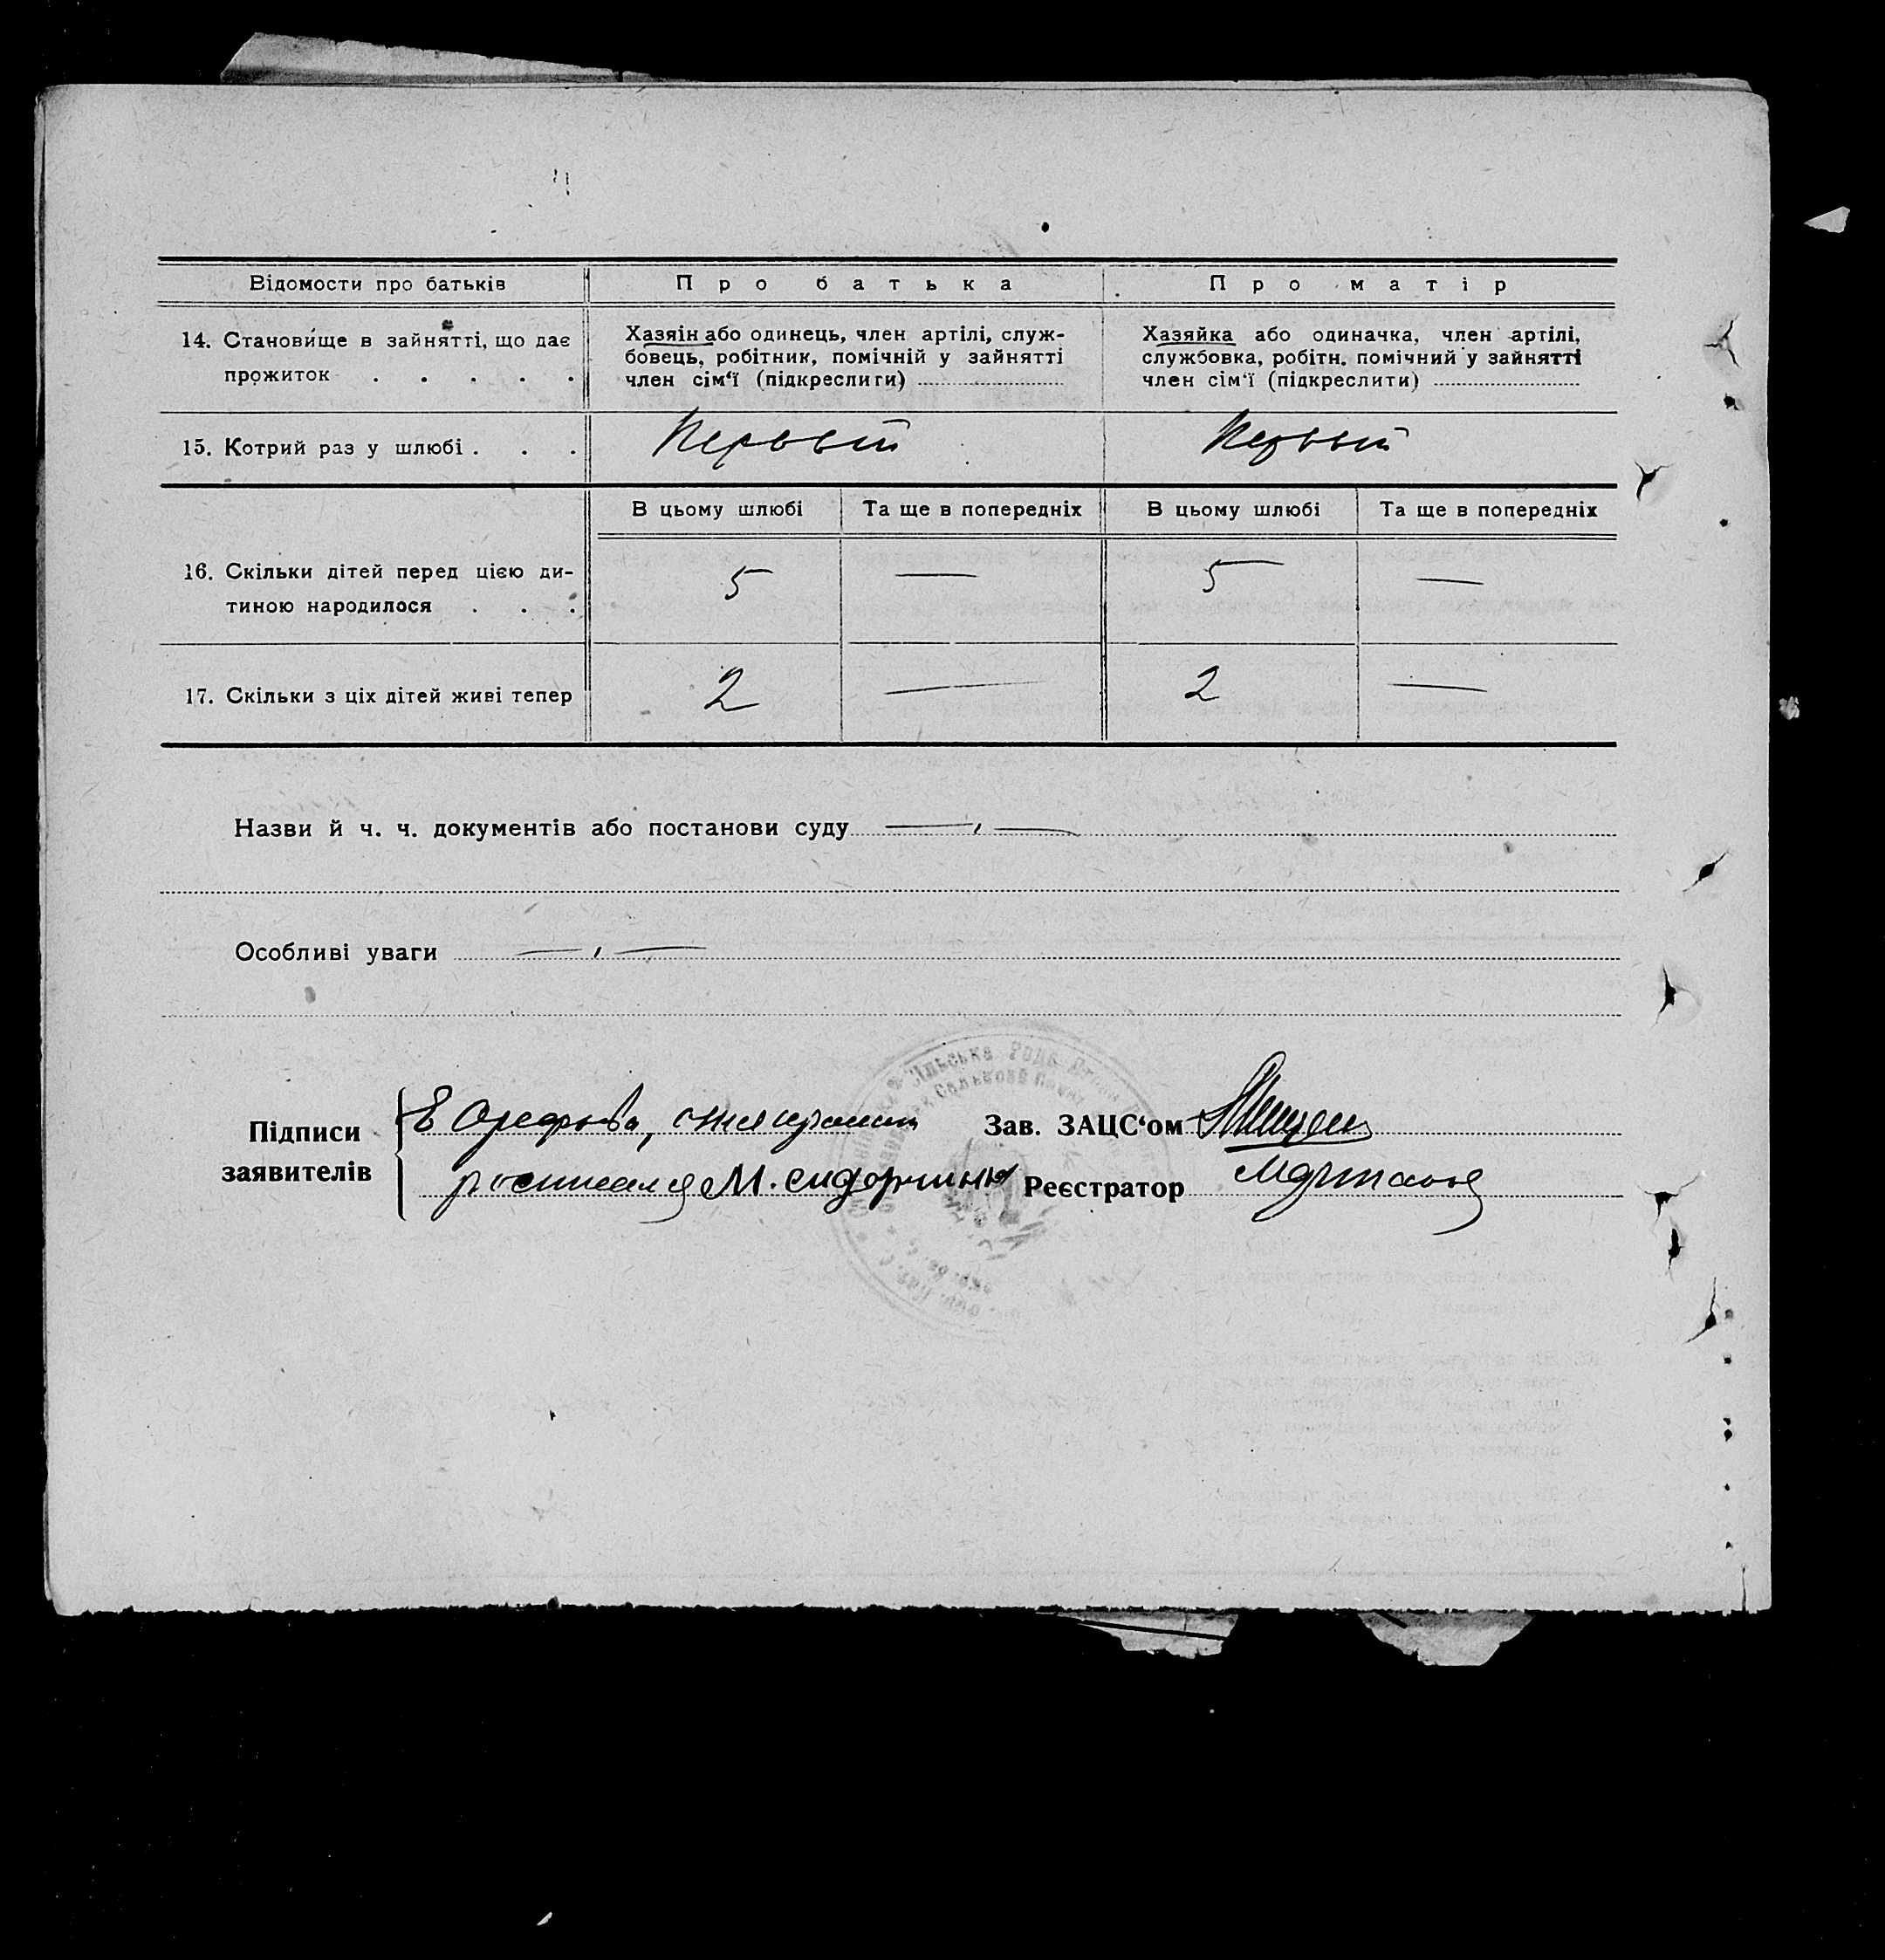 Відомости про батьків
Про батька
Про матір
14. Становище в зайнятті, що дає
прожиток . . . . .
Хазяін або одинець, член артілі, служ-
бовець, робітник, помічній у зайнятті
член сім‘ї (підкреслити)
Хазяйка або одиначка, член артілі,
службовка, робітн. помічний у зайнятті
член сім‘ї (підкреслити)
15. Котрий раз у шлюбі . . .
Первый
Первый
В цьому шлюбі
Та ще в попередніх
В цьому шлюбі
Та ще в попередніх
16. Скільки дітей перед цією ди-
тиною народилося . . .
5 — 5 —
17. Скільки з ціх дітей живі тепер
2 — 2 —
Назви й ч. ч. документів або постанови суду
Особливі уваги
Підписи
заявителів
Е
росписался М.
Зав. ЗАЦС‘ом
Реєстратор
Сільська Рада